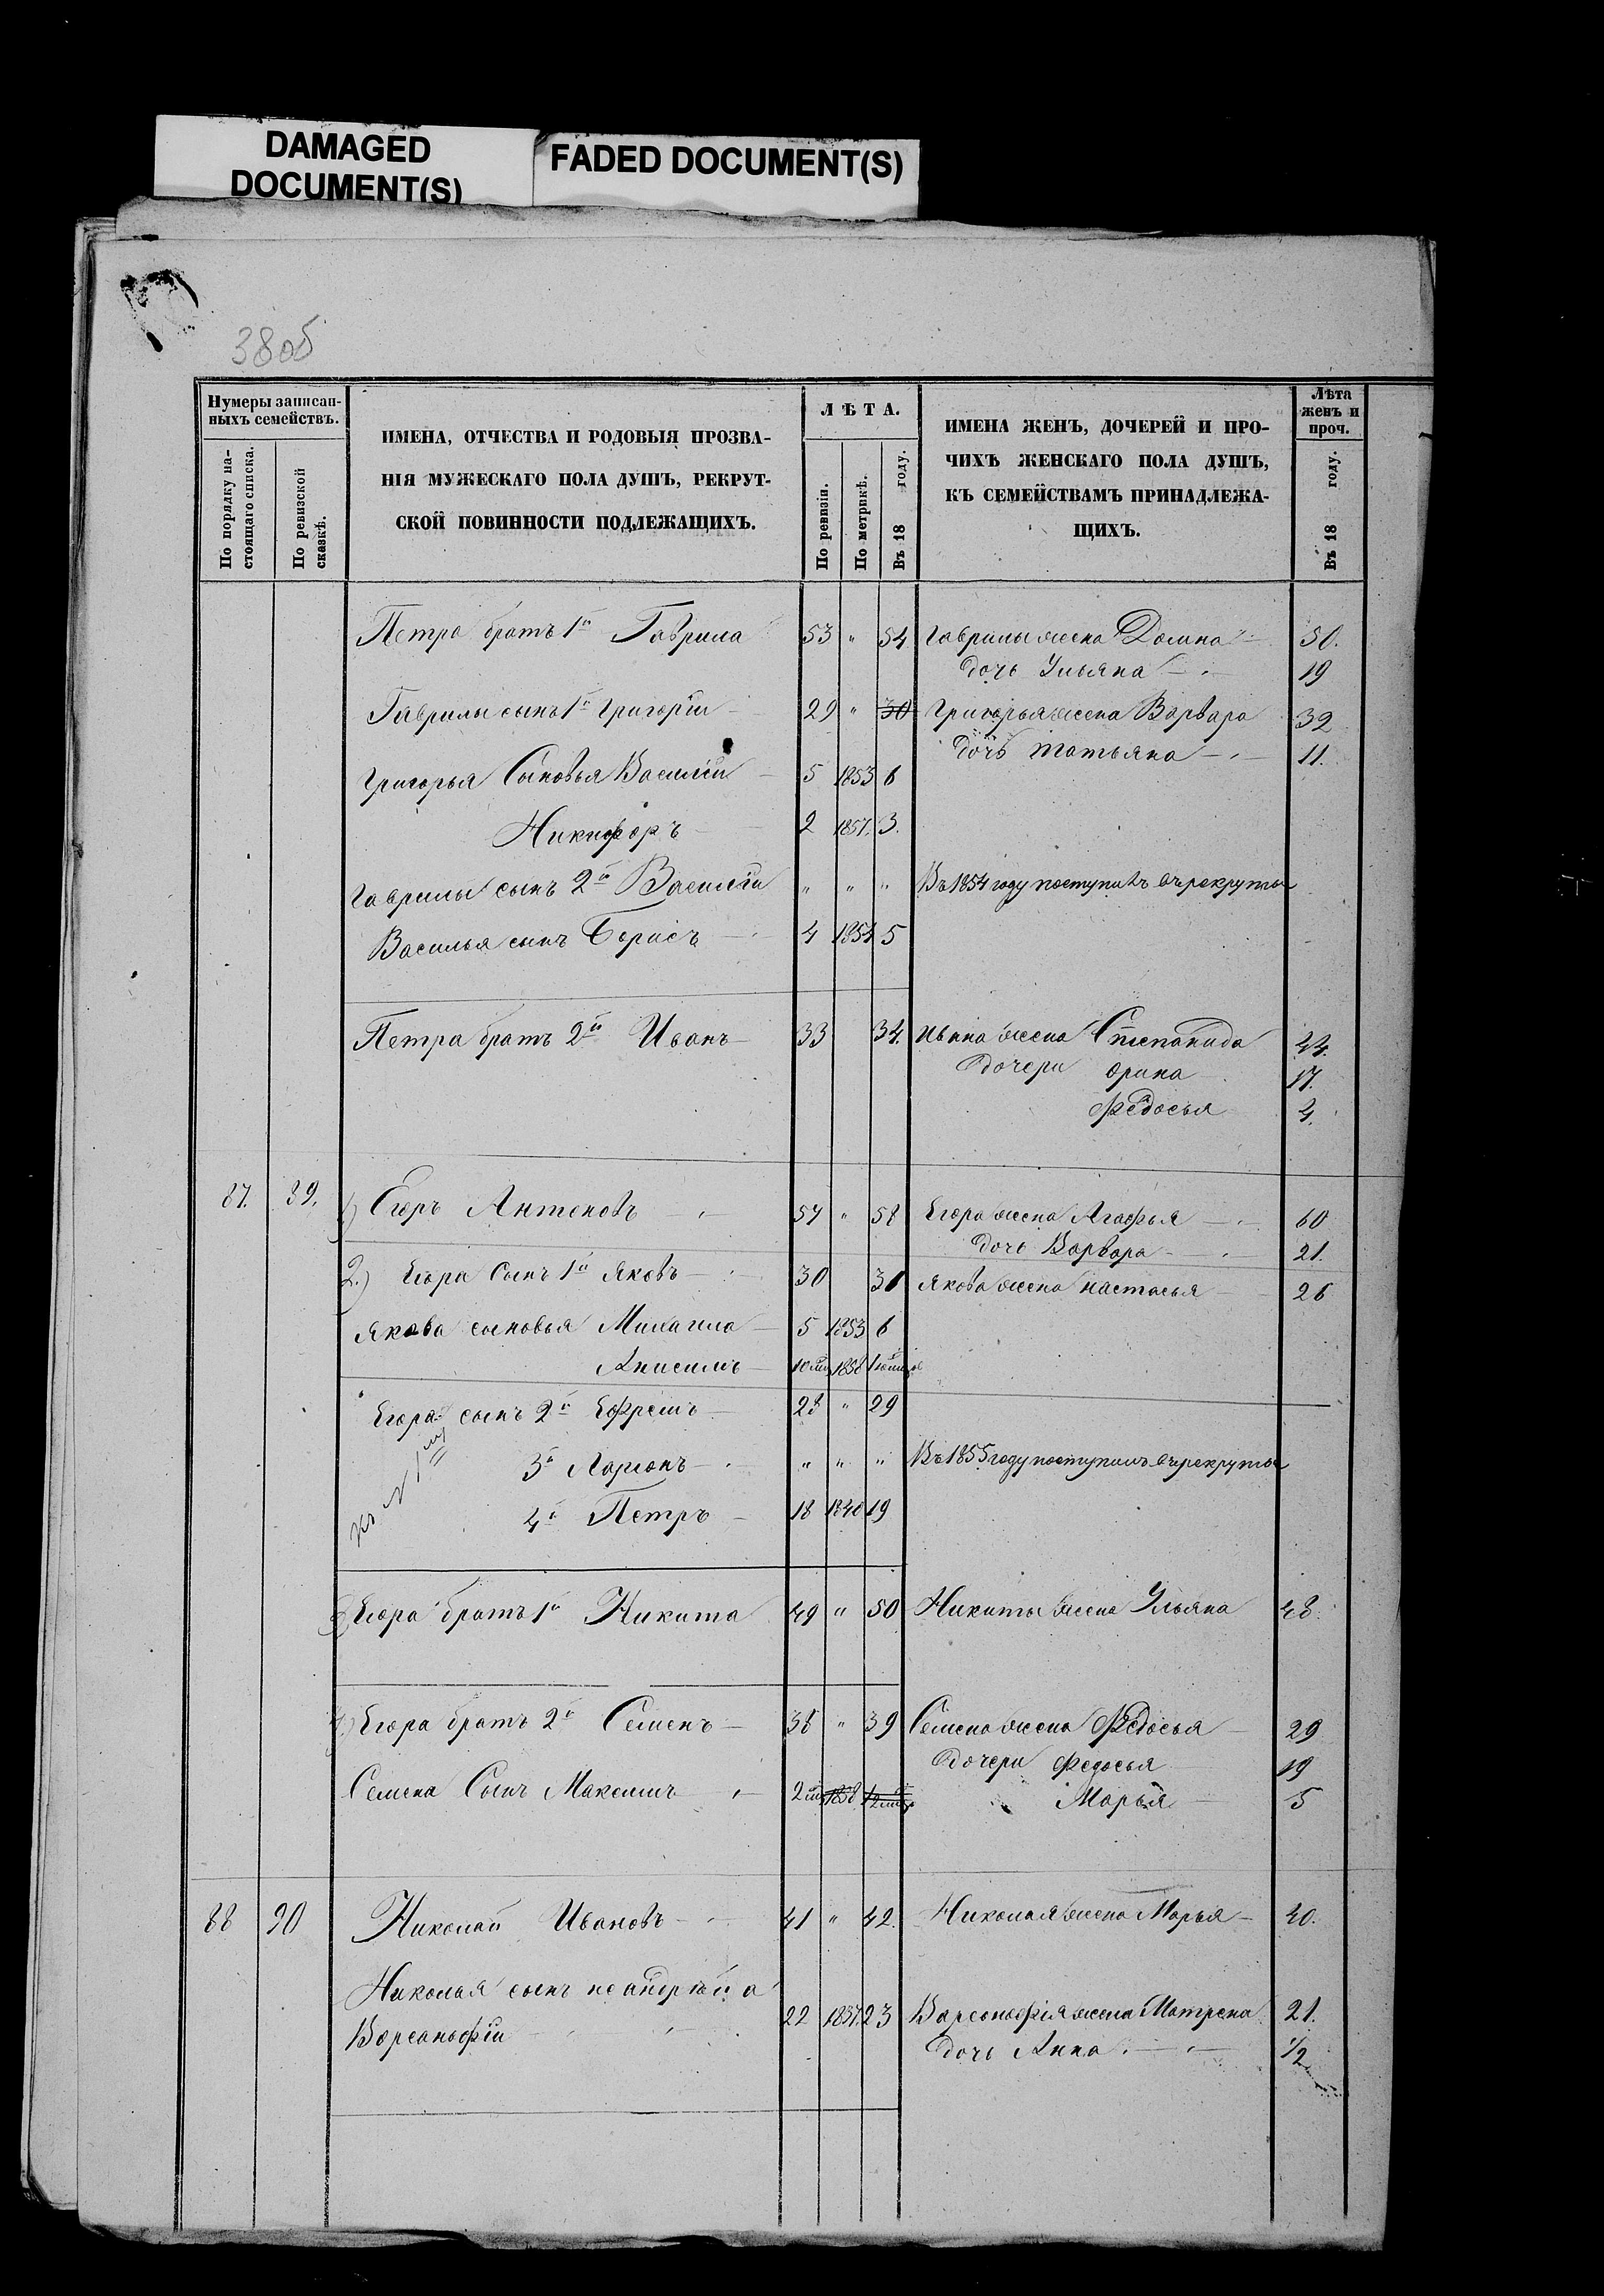 DAMAGED DOCUMENT(S)
FADED DOCUMENT(S)
38об
Нумеры записан-
ныхъ семействъ.
По порядку на-
стоящаго списка.
По ревизской
сказкѣ.
ИМЕНА, ОТЧЕСТВА И РОДОВЫЯ ПРОЗВА-
НІЯ МУЖЕСКАГО ПОЛА ДУШЪ, РЕКРУТ-
СКОЙ ПОВИННОСТИ ПОДЛЕЖАЩИХЪ.
ЛѢТА.
По ревизіи.
По метрикѣ.
Въ 18 году.
ИМЕНА ЖЕНЪ, ДОЧЕРЕЙ И ПРО-
ЧИХЪ ЖЕНСКАГО ПОЛА ДУШЪ,
КЪ СЕМЕЙСТВАМЪ ПРИНАДЛЕЖА-
ЩИХЪ.
Лѣта
женъ и
проч.
Въ 18 году.
Петра братъ 1й Гаврила 53 " 54 Гаврилы жена Домна 50.
дочь Ульяна 19
Гаврилы сынъ 1й Григорій 29 " 30 Григорья жена Варвара 32
дочь Татьяна 11.
Григорья Сыновья Василій 5 1853 6
Никифоръ 2 1857. 3.
Гаврилы сынъ 2й Василій " " " Въ 1854 году поступилъ въ рекруты
Василья сынъ Борисъ 4 1854 5
Петра братъ 2й Иванъ 33 34. Ивана жена Степанида 44.
Дочери Орина 17.
Федосья 4.
87. 89. 1) Егоръ Антоновъ 57 " 58 Егора жена Агафья 60
дочь Варвара 21.
2.) Егора Сынъ 1й Яковъ 30 31 Якова жена Настасья 26
Якова сыновья Михаила 5 1853 6
Анисимъ 1858
Егора сынъ 2й Ефремъ 28 " 29
3й Ларіонъ " " " Въ 1855 году поступилъ въ рекруты
4й Петръ 18 1840 19
3) Егора братъ 1й Никита 49 " 50 Никиты жена Ульяна 48.
4) Егора братъ 2й Семенъ 38 " 39 Семена жена Федосья 29
Дочери Федосья 19
Семена Сынъ Максимъ 1858 Марья 5
88 90 Николай Ивановъ 41 " 42. Николая жена Марья 40.
Николая сынъ
Варсонофій 22 1837. 23 Варсонофія жена Матрена 21.
дочь Анна 1/2